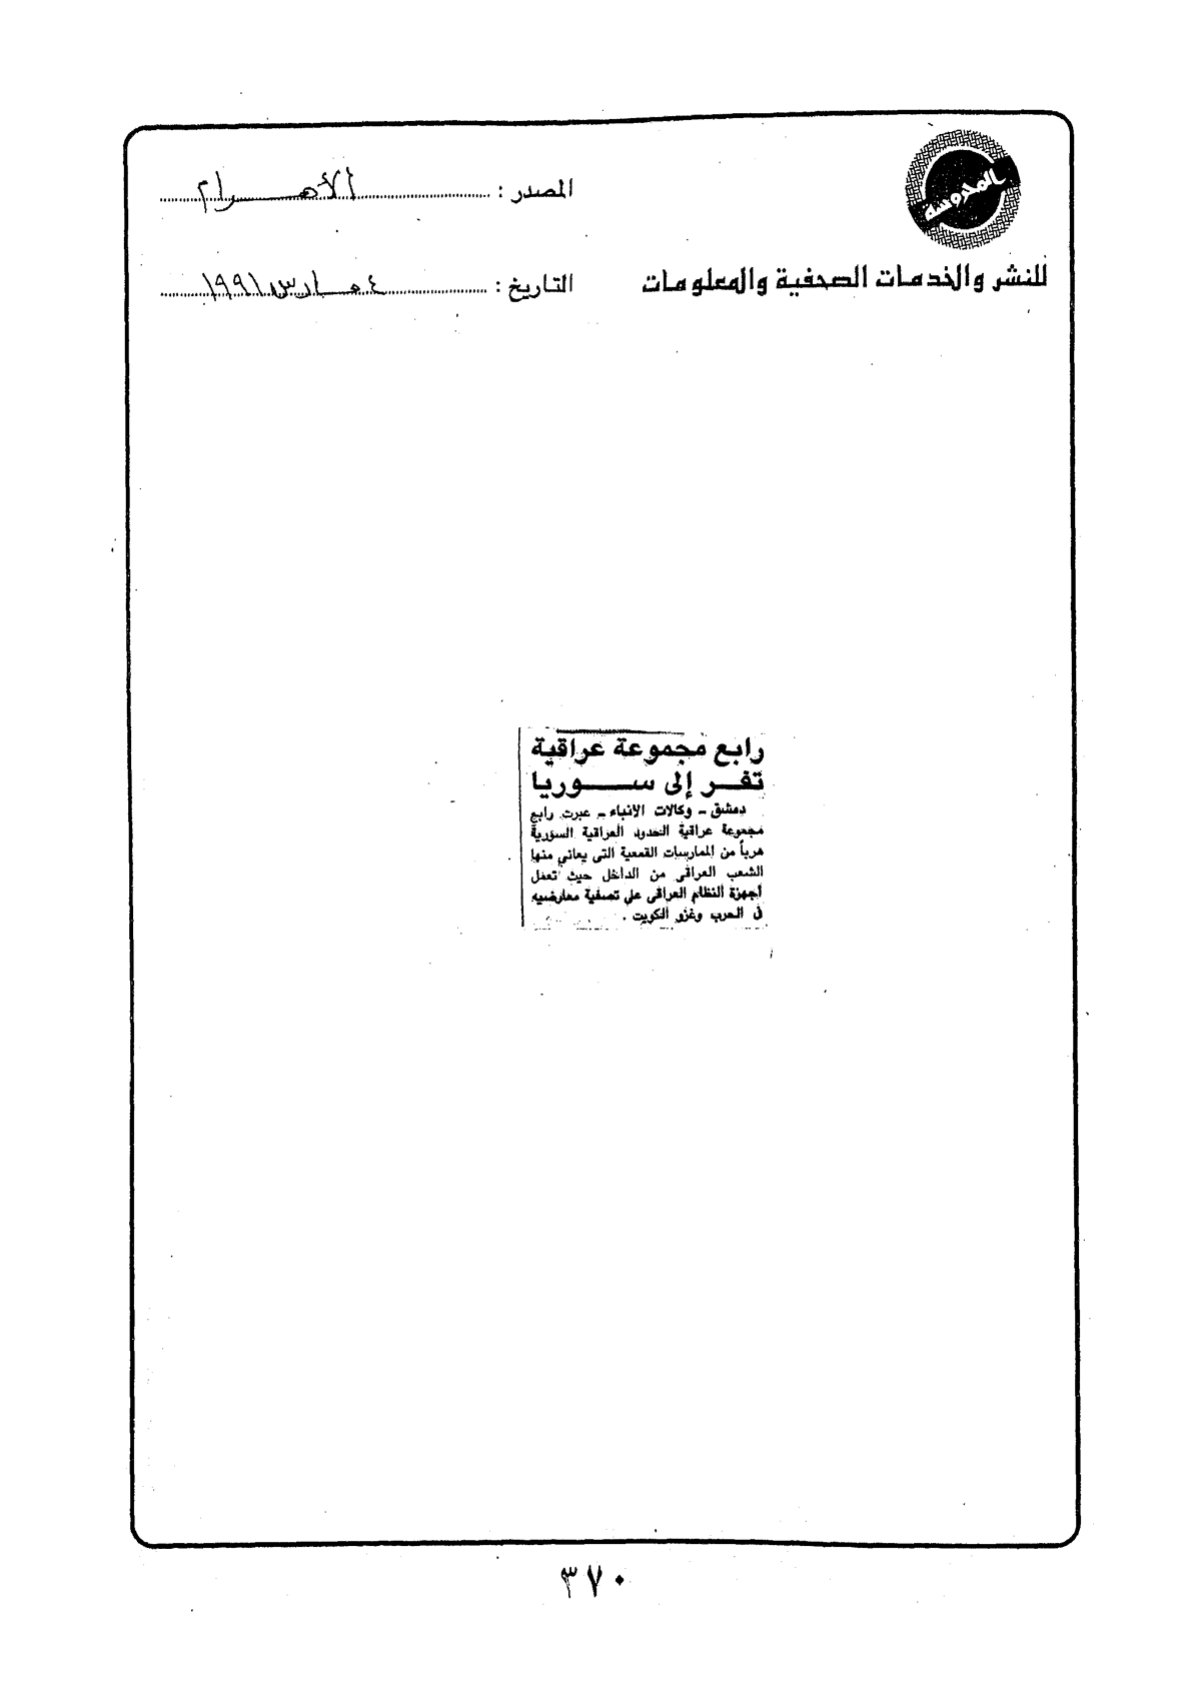 المحروسة
للنشر والخدمات الصحفية والمعلومات
المصدر : الأهرام
التاريخ : ٤ مارس ١٩٩١
رابع مجموعة عراقية
تفر إلى سوريا
دمشق - وكالات الأنباء - عبرت رابع
مجموعة عراقية الحدود العراقية السورية
هرباً من الممارسات القمعية التى يعانى منها
الشعب العراقى من الداخل حيث تعمل
أجهزة النظام العراقى على تصفية معارضيه
فى الحرب وغزو الكويت .
٣٧٠